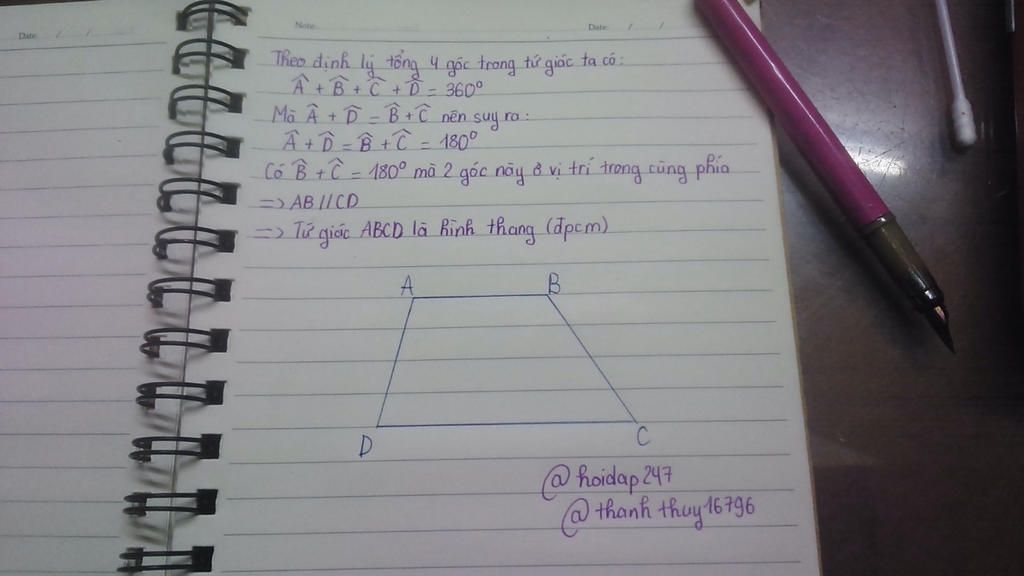 Date: / /
Note:
Date: / /
Theo định lý tổng 4 góc trong tứ giác ta có:
Â + B̂ + Ĉ + D̂ = 360°
Mà Â + D̂ = B̂ + Ĉ nên suy ra:
Â + D̂ = B̂ + Ĉ = 180°
Có B̂ + Ĉ = 180° mà 2 góc này ở vị trí trong cùng phía
=> AB//CD
=> Tứ giác ABCD là hình thang (đpcm)
A B
D C
@hoidap247
@thanhthuy16796